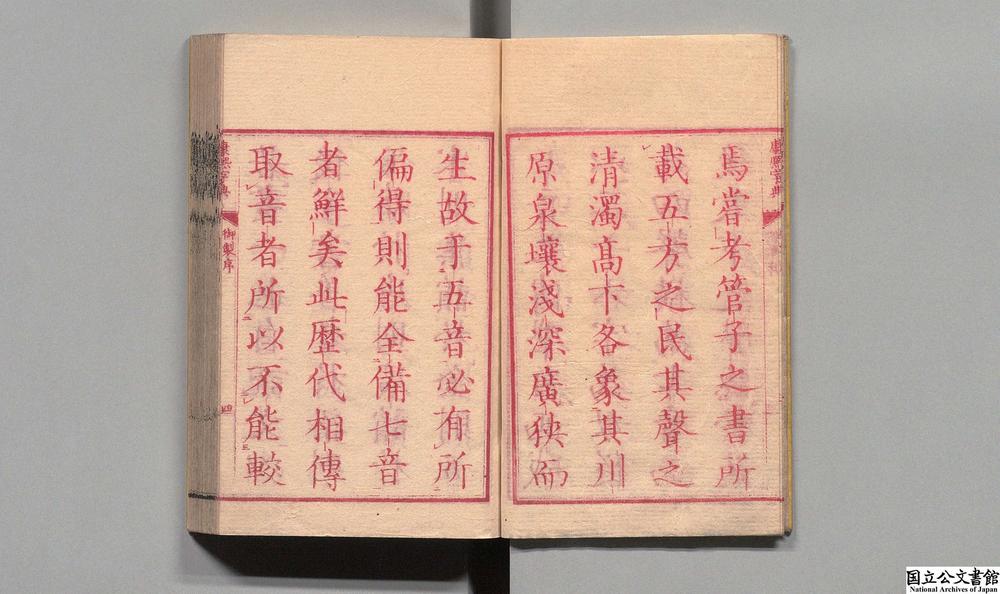 焉嘗考管子之書所
載五方之民其聲之
清濁髙下各象其川
原泉壤淺深廣狹而
生故于五音必有所
偏得則能全備七音
者鮮矣此歴代相傳
取音者所以不能較
康熙字典
御製序
四
国立公文書館
National Archives of Japan